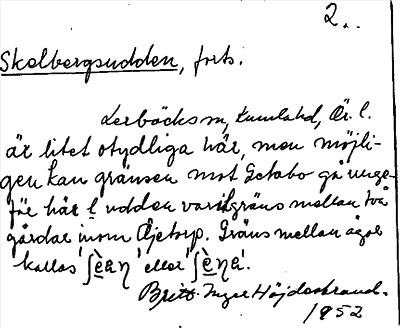 2..
Skalbergsudden, forts.
Lerbäcks sn, Kumla hd, Ör. l.
är litet otydliga här, men möjli-
gen kan gränsen mot Getabo gå unge-
fär här l udden varit gräns mellan två
gårdar inom Öjetorp. Gräns mellan ägor
kallas ʃèaη' eller ʃèηa'.
Britt Inger Höjdestrand.
1952